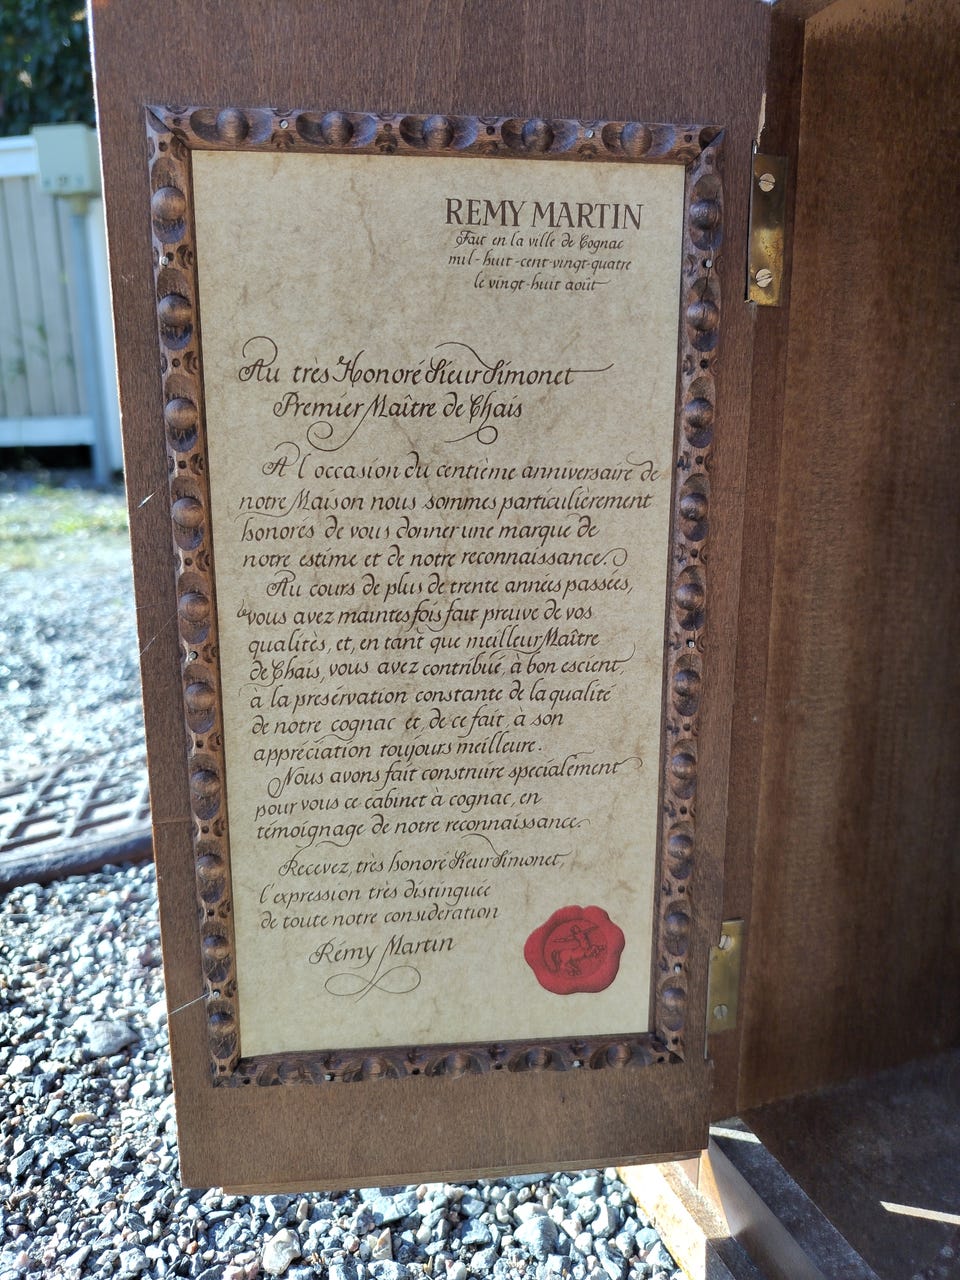 REMY MARTIN
Fait en la ville de Cognac
mil-huit-cent-vingt-quatre
le vingt-huit août
Au très Honoré Sieur Simonet
Premier Maître de Chais
A l occasion du centième anniversaire de
notre Maison nous sommes particulièrement
honorés de vous donner une marque de
notre estime et de notre reconnaissance.
Au cours de plus de trente années passées,
vous avez maintes fois fait preuve de vos
qualités, et, en tant que meilleur Maître
de Chais, vous avez contribué, à bon escient,
à la préservation constante de la qualité
de notre cognac et, de ce fait, à son
appréciation toujours meilleure.
Nous avons fait construire spécialement
pour vous ce cabinet à cognac, en
témoignage de notre reconnaissance.
Recevez, très honoré Sieur Simonet,
l'expression très distinguée
de toute notre considération
Rémy Martin